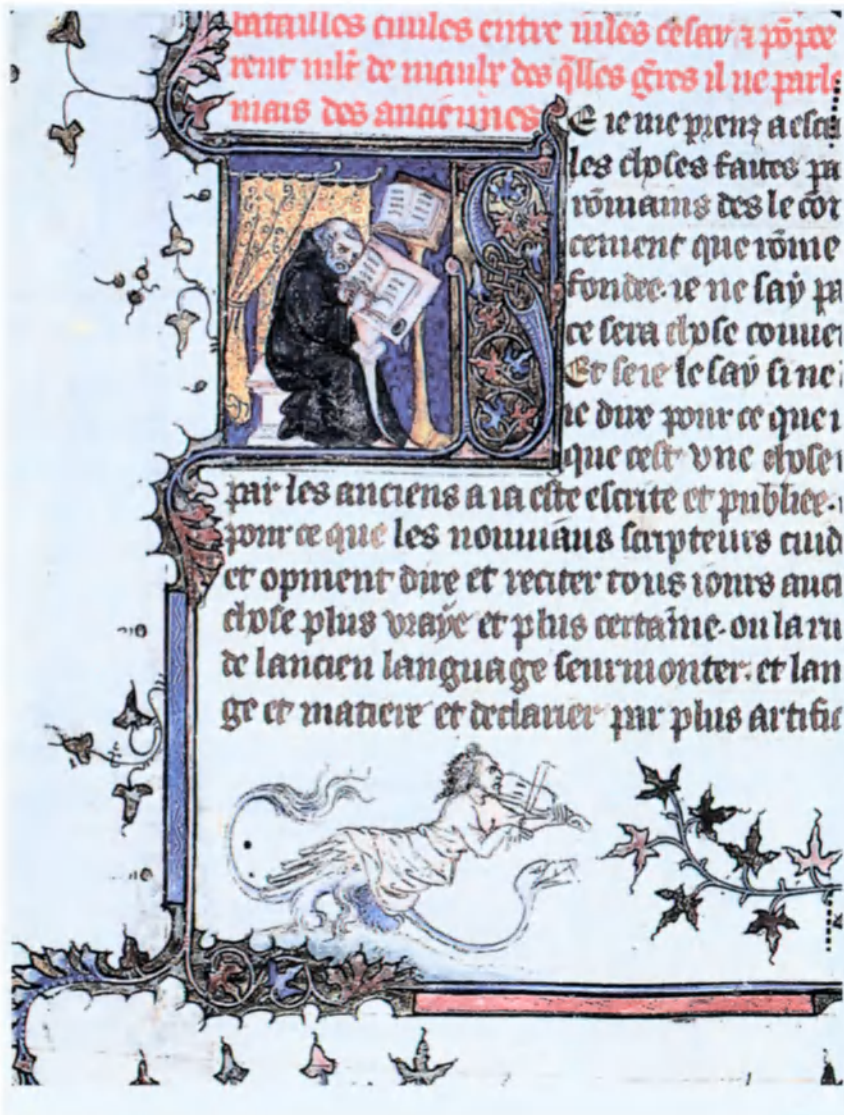 batailles ciuiles entre iules cesar ⁊ pōpee
rent mlt de maulx des q̄lles gr̄es il ne parle
mais des anciennes
SE ie me prenz a escri
les choses faites pa
rōmains des le cō
cement que rōme
fondee. ie ne say pa
ce sera chose conue
Et se ie le say si ne
ie dire pour ce que i
que cest vne chose
par les anciens a ia este escrite et publiee.
pour ce que les nouuiaus scripteurs cuid
et opinent dire et reciter tous iours auci
chose plus vraye et plus certaine. ou la ru
de lancien language seurmonter. et lan
ge et matiere et declairier par plus artific